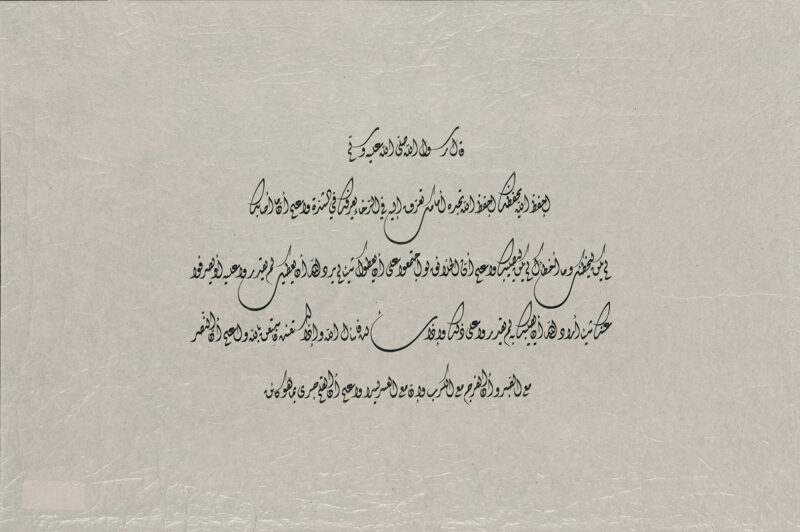 قال رسول الله صلى الله عليه وسلم
احفظ الله يحفظك احفظ الله تجده أمامك تعرف إليه في الرخاء يعرفك في الشدة واعلم أن ما أصابك
لم يكن ليخطئك وما أخطأك لم يكن ليصيبك واعلم أن الخلائق لو اجتمعوا على أن يعطوك شيئا لم يرد الله أن يعطيك لم يقدروا عليه أو يصرفوا
عنك شيئا أراد الله أن يصيبك به لم يقدروا على ذلك وإذا سألت فاسأل الله وإذا استعنت فاستعن بالله واعلم أن النصر
مع الصبر وأن الفرج مع الكرب وإن مع العسر يسرا واعلم أن القلم جرى بما هو كائن